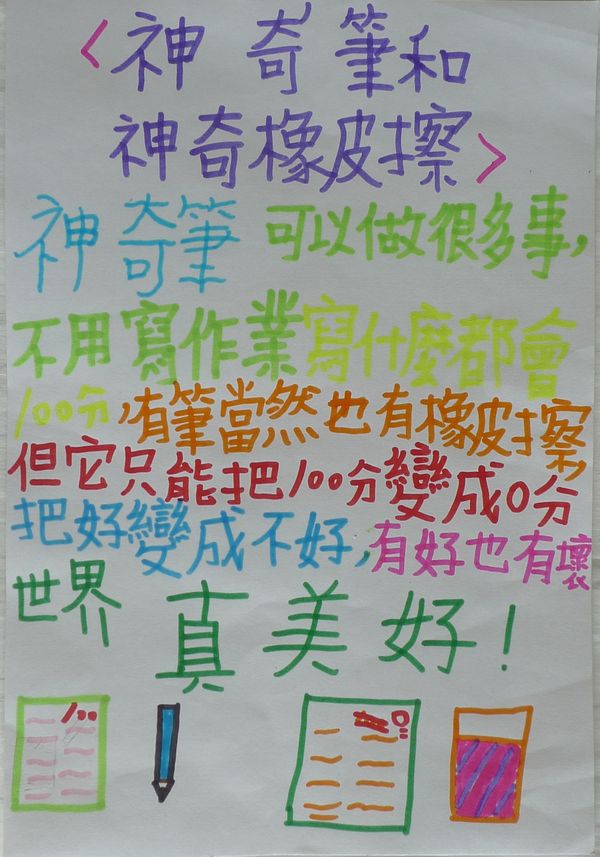 <神奇筆和
神奇橡皮擦>
神奇筆 可以做很多事,
不用寫作業寫什麼都會
100分,有筆當然也有橡皮擦,
但它只能把100分變成0分
把好變成不好,有好也有壞
世界真美好!
100
0